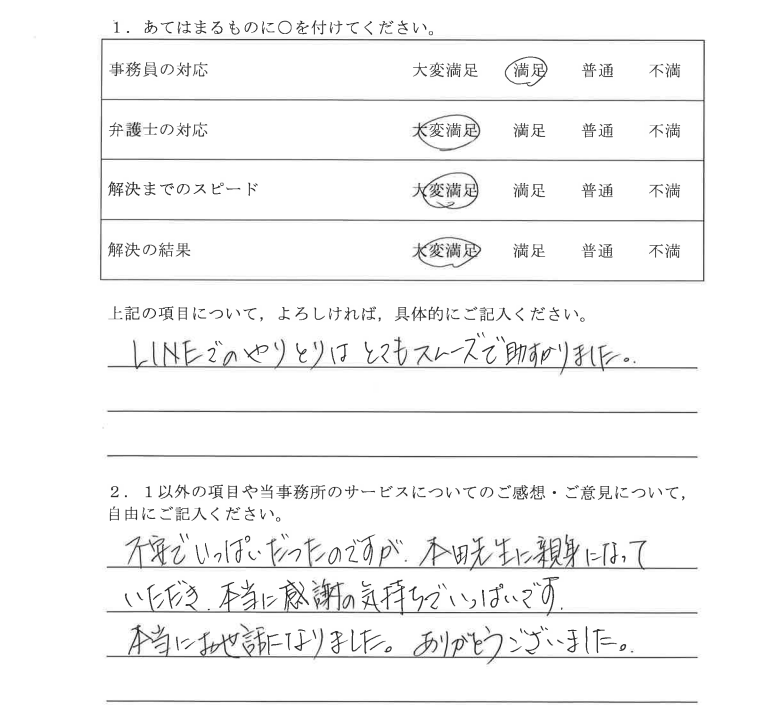 1．あてはまるものに○を付けてください。
事務員の対応 大変満足 満足 普通 不満
弁護士の対応 大変満足 満足 普通 不満
解決までのスピード 大変満足 満足 普通 不満
解決の結果 大変満足 満足 普通 不満
上記の項目について，よろしければ，具体的にご記入ください。
LINEでのやりとりはとてもスムーズで助すかりました。
2．1以外の項目や当事務所のサービスについてのご感想・ご意見について，
自由にご記入ください。
不安でいっぱいだったのですが、本田先生に親身になって
いただき、本当に感謝の気持ちでいっぱいです。
本当にお世話になりました。ありがとうございました。